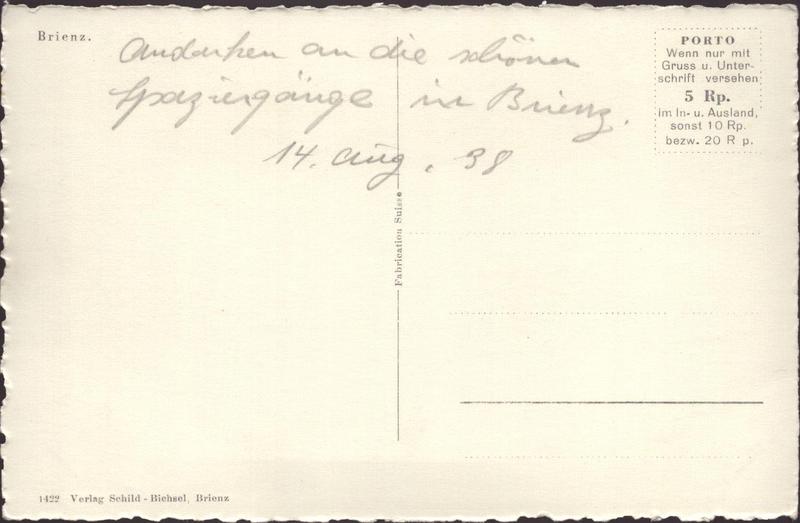 Brienz.
Andenken an die schönen
Spaziergänge in Brienz.
14. Aug. 38
PORTO
Wenn nur mit
Gruss u. Unter-
schrift versehen
5 Rp.
im In- u. Ausland,
sonst 10 Rp.
bezw. 20 R p.
Fabrication Suisse
1422 Verlag Schild - Bichsel, Brienz